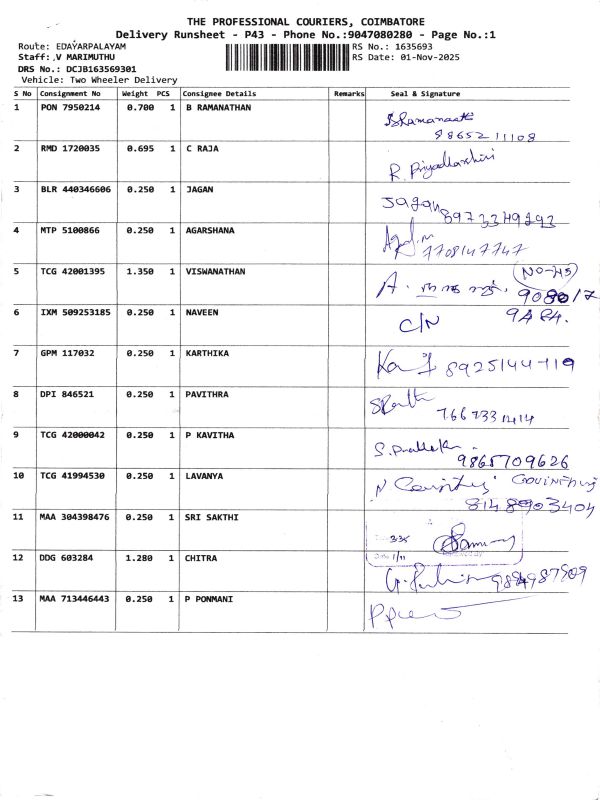 THE PROFESSIONAL COURIERS, COIMBATORE
Delivery Runsheet - P43 - Phone No.:9047080280 - Page No.:1
Route: EDAYARPALAYAM RS No.: 1635693
Staff: V MARIMUTHU RS Date: 01-Nov-2025
DRS No.: DCJB163569301
Vehicle: Two Wheeler Delivery
S No Consignment No Weight PCS Consignee Details Remarks Seal & Signature
1 PON 7950214 0.700 1 B RAMANATHAN
9865211108
2 RMD 1720035 0.695 1 C RAJA R. Priyadharshini
3 BLR 440346606 0.250 1 JAGAN Jagan
4 MTP 5100866 0.250 1 AGARSHANA
7708147747
5 TCG 42001395 1.350 1 VISWANATHAN NO-45
A.
6 IXM 509253185 0.250 1 NAVEEN C/N
7 GPM 117032 0.250 1 KARTHIKA 8925144119
8 DPI 846521 0.250 1 PAVITHRA
9 TCG 42000042 0.250 1 P KAVITHA
9865709626
10 TCG 41994530 0.250 1 LAVANYA
8148903404
11 MAA 304398476 0.250 1 SRI SAKTHI
335
1/11
12 DDG 603284 1.280 1 CHITRA
13 MAA 713446443 0.250 1 P PONMANI